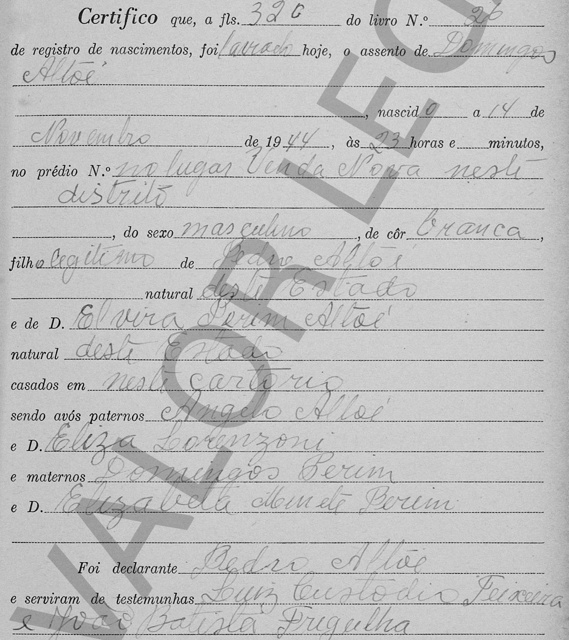 Certifico que, a fls. 320 do livro N.º 26
de registro de nascimentos, foi lavrado hoje, o assento de Domingos
Altoé
, nascido a 14 de
Novembro de 1944, às 23 horas e minutos,
no prédio N.º no lugar Venda Nova neste
distrito
, do sexo masculino, de côr branca,
filho legitimo de Pedro Altoé
natural deste Estado
e de D. Elvira Perim Altoé
natural deste Estado
casados em neste cartorio
sendo avós paternos Angelo Altoé
e D. Eliza Lorenzoni
e maternos Domingos Perim
e D. Elizabeta Minete Perim
Foi declarante Pedro Altoé
e serviram de testemunhas Luiz Custodio Teixeira
e João Batista
VALOR LEG